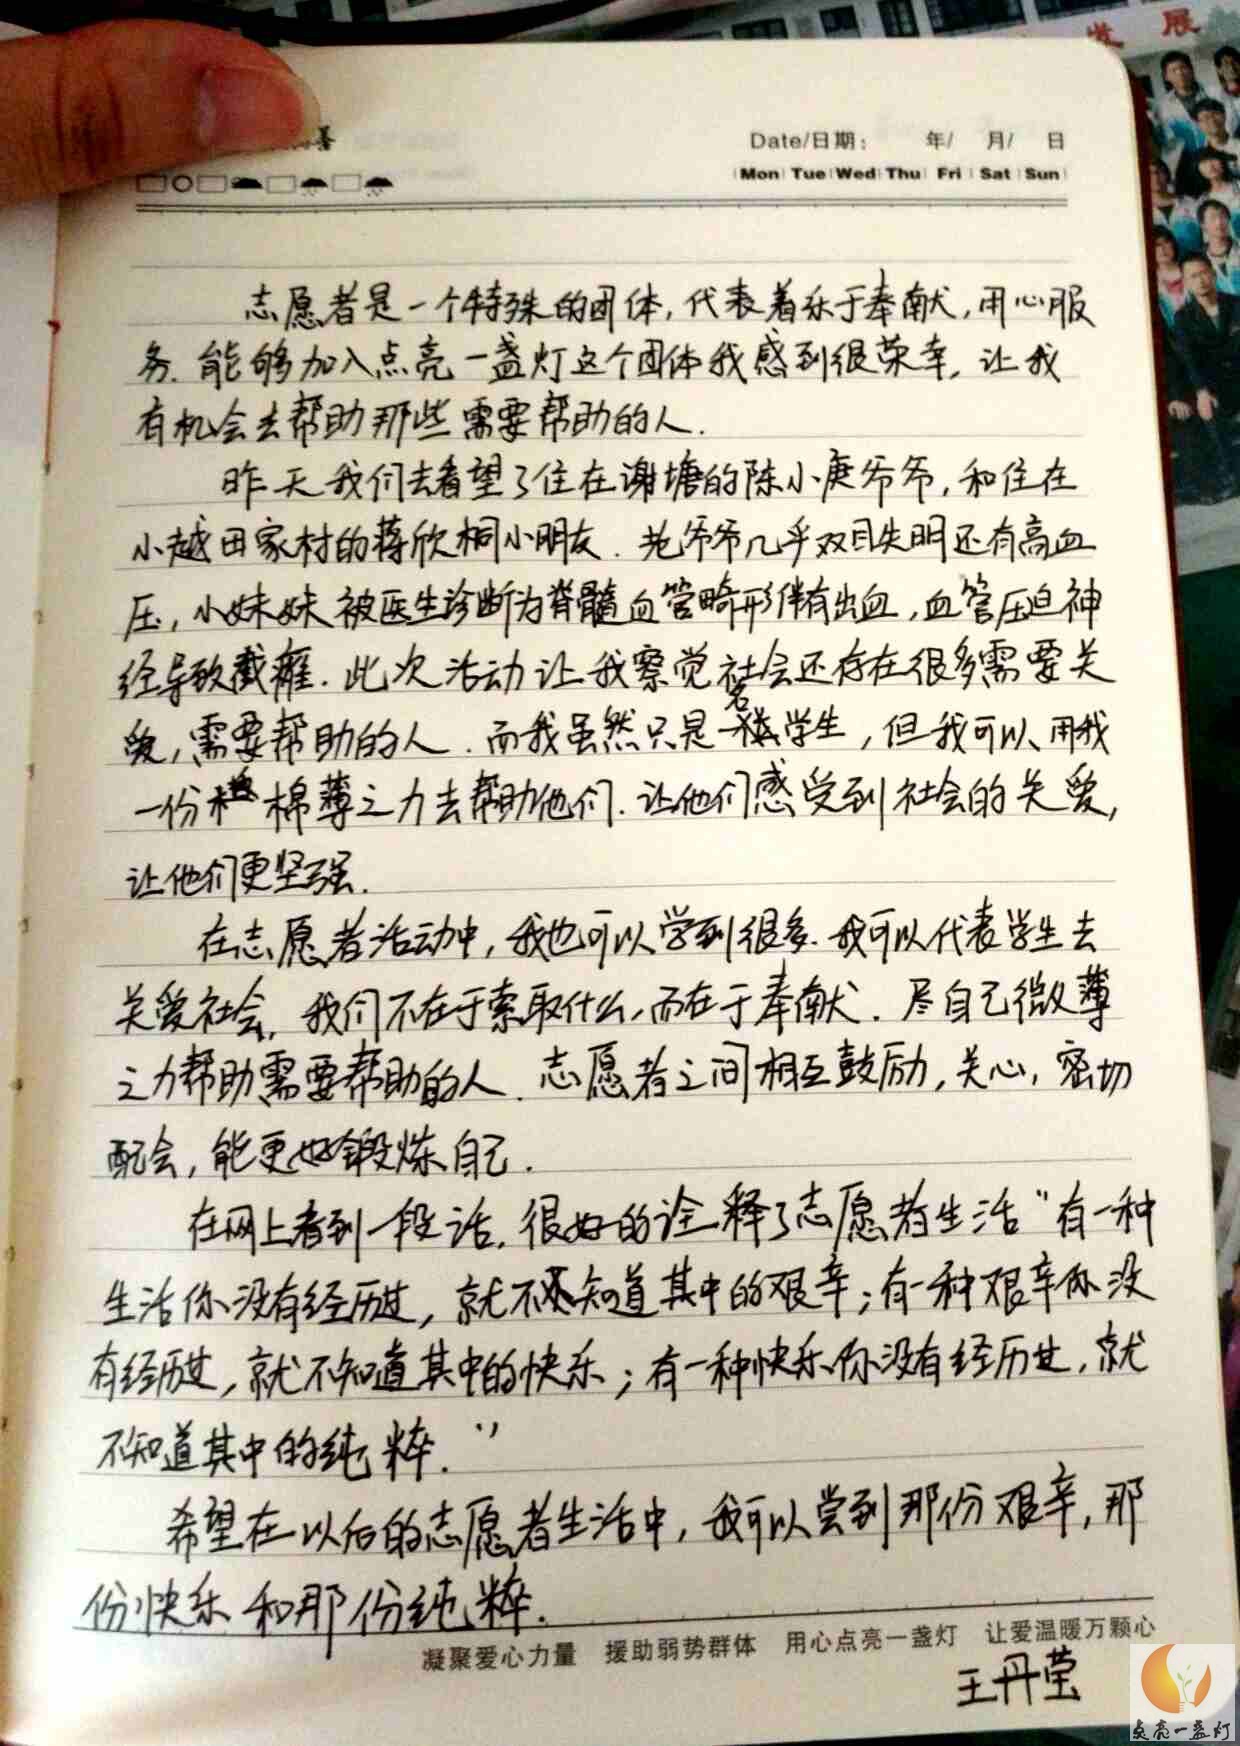 发展
善
Date/日期： 年/ 月/ 日
Mon Tue Wed Thu Fri Sat Sun
志愿者是一个特殊的团体，代表着乐于奉献，用心服
务.能够加入点亮一盏灯这个团体我感到很荣幸，让我
有机会去帮助那些需要帮助的人.
昨天我们去看望了住在谢塘的陈小庚爷爷，和住在
小越田家村的蒋欣桐小朋友.老爷爷几乎双目失明还有高血
压，小妹妹被医生诊断为脊髓血管畸形伴有出血，血管压迫神
经导致截瘫.此次活动让我察觉社会还存在很多需要关
爱，需要帮助的人.而我虽然只是一名学生，但我可以用我
一份棉薄之力去帮助他们.让他们感受到社会的关爱，
让他们更坚强.
在志愿者活动中，我也可以学到很多.我可以代表学生去
关爱社会，我们不在于索取什么，而在于奉献.尽自己微薄
之力帮助需要帮助的人.志愿者之间相互鼓励，关心，密切
配合，能更好锻炼自己.
在网上看到一段话，很好的诠释了志愿者生活“有一种
生活你没有经历过，就不知道其中的艰辛；有一种艰辛你没
有经历过，就不知道其中的快乐；有一种快乐你没有经历过，就
不知道其中的纯粹.”
希望在以后的志愿者生活中，我可以尝到那份艰辛，那
份快乐和那份纯粹.
凝聚爱心力量 援助弱势群体 用心点亮一盏灯 让爱温暖万颗心
王丹莹
点亮一盏灯